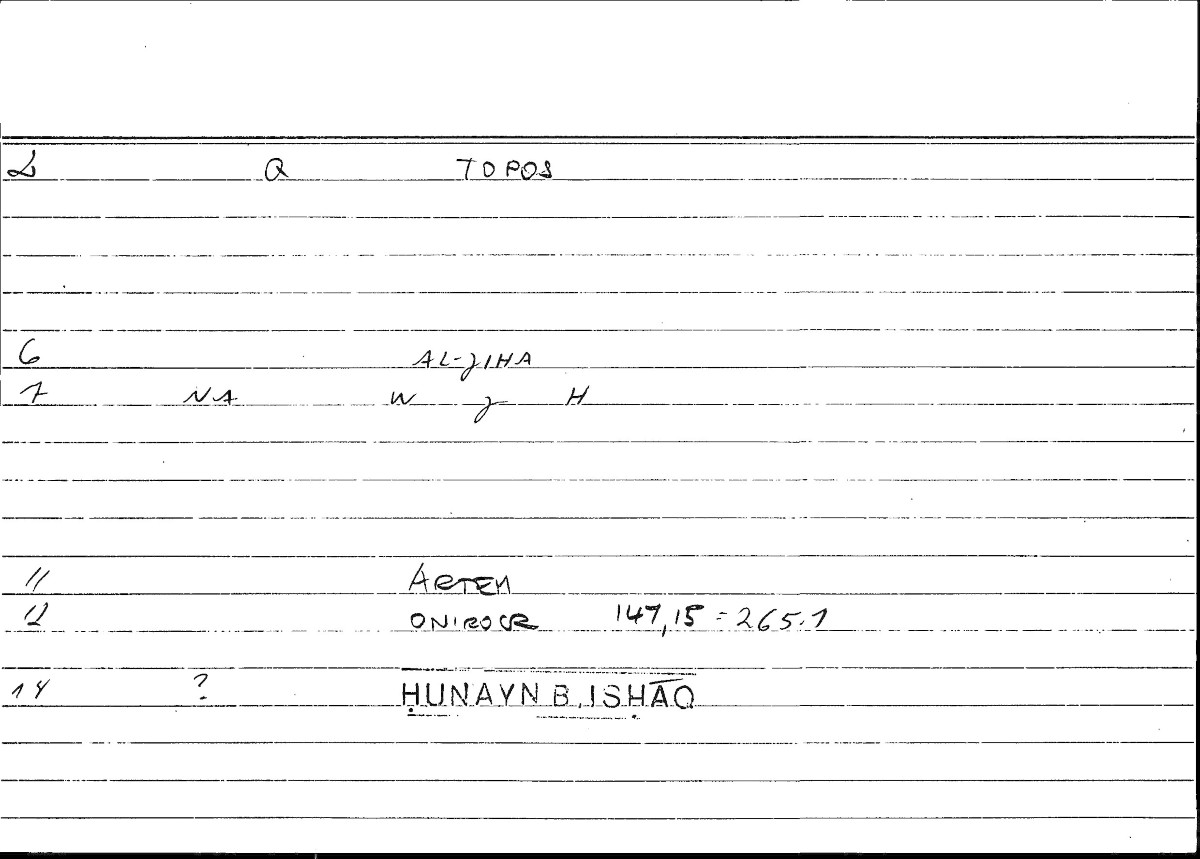 2 Q TOPOS
6 AL-JIHA
7 NA W J H
11 ARTEM
12 ONIROCR 147,15 = 265.1
14 ? ḤUNAYN B. ISḤĀQ